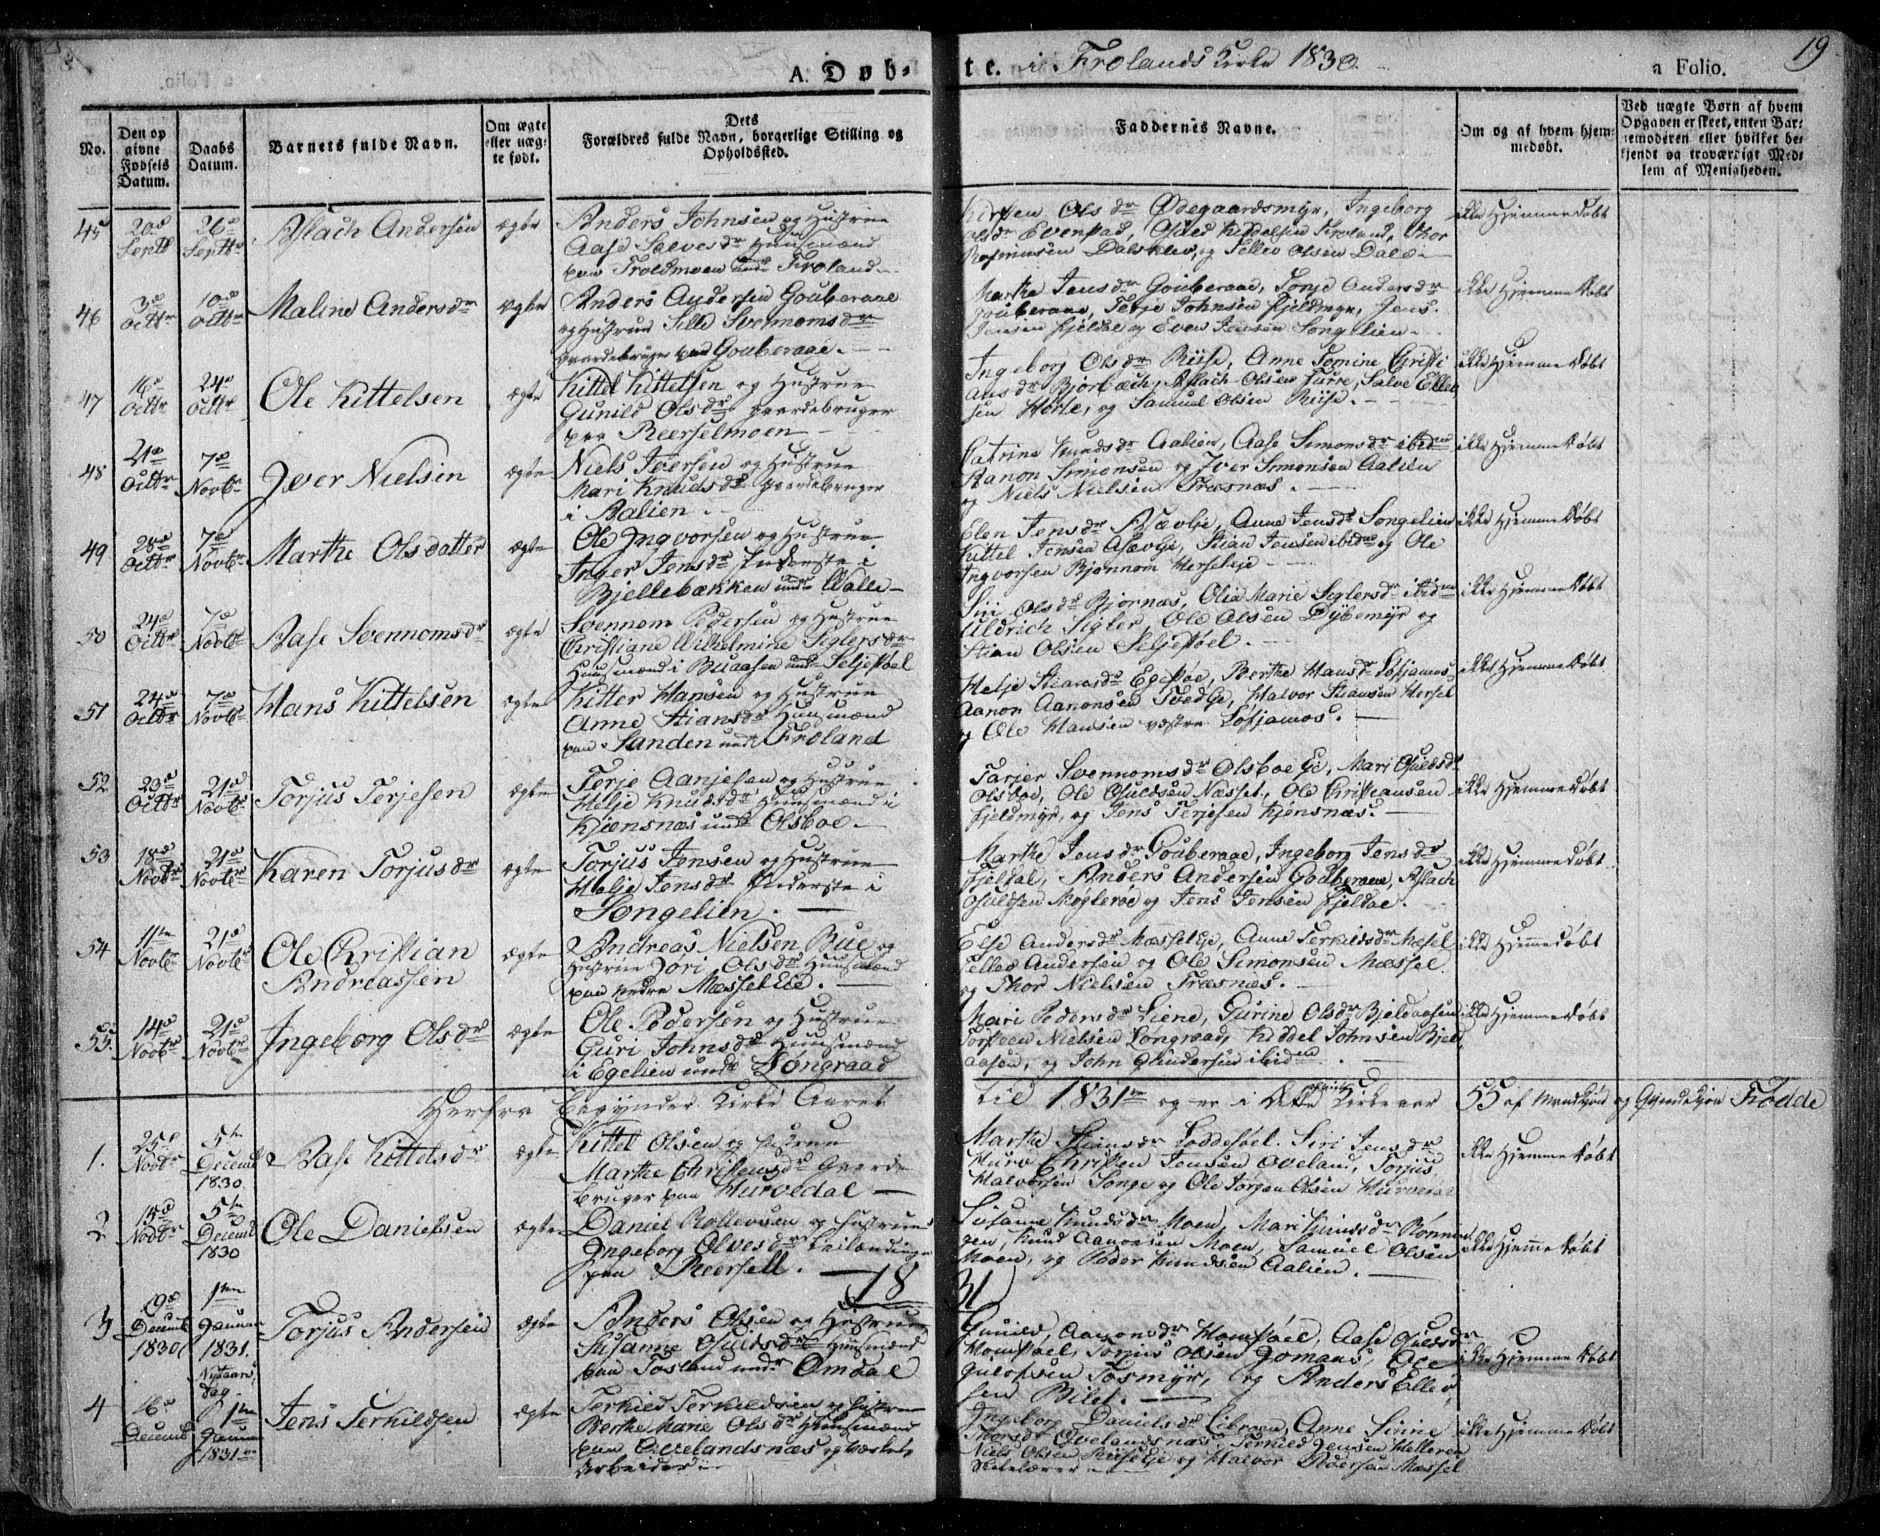 A. Døb- te. i Frolands Kirke 1830. 19
a Folio.
No.
Den opgivne Fødsels Datum.
Daabs Datum.
Barnets fulde Navn.
Om ægte eller uægte født.
Dets Forældres fulde Navn, borgerlige Stilling og Opholdssted.
Faddernes Navne.
Om og af hvem hjemmedøbt.
Ved uægte Børn af hvem Opgaven er skeet, enten Barnemoderen eller hvilket bekjendt og troværdigt Medlem af Menigheden.
45 20d Septb 26d Septbr Aslach Andersen ægte
Anders Johnsen og Hustrue
Aase Salvesdr Huusmænd
paa Troldmoen und Froland
Olsdr Ødegaardsmyr, Ingeborg
Olsdr Evenstad, Kiddelsen Froland, Thor
Rasmusen Dalsklev, og Tellev Olsen Dale
ikke Hjemmedøbt
46 3d Octbr 10d Octbr Maline Andersdr ægte
Anders Andersen Gouberaae
og Hustrue Sille Svennomsdr
Gaardebruger paa Gouberaae.
Marthe Jensdr Gouberaae, Tonje Andersdr
Gouberaae, Terje Johnsen Fjeldmyr, Jens
Jensen Fjeldal og Even Jensen Songelien
ikke Hjemmedøbt
47 16d Octbr 24d Octbr Ole Kittelsen ægte
Kittel Kittelsen og Hustrue
Gunild Olsdr Gaardebruger
paa Reerselmoen
Ingeborg Olsdr Riise, Anne Tomine Christi
ansdr Bjorbæch, Aslach Olsen Furre, Salve Ellev
sen Hørte, og Samuel Olsen Riise.
ikke Hjemmedøbt
48 21d Octbr 7d Novbr Jver Nielsen ægte
Niels Iversen og Hustrue
Mari Knudsdr Gaardebruger
i Aalien.
Catrine Knudsdr Aalien, Aase Simonsdr ibidm
Aanon Simonsen og Iver Simonsen Aalien
og Niels Nielsen Træsnæs.
ikke Hjemmedøbt
49 28d Octbr 7d Novbr Marthe Olsdatter ægte
Ole Ingvorsen og Hustrue
Inger Jensdr Inderste i
Bjellebækken und Walle
Elen Jensdr Asævlje, Anne Jensdr Songelien
Kittel Jensen Asævlje, Stian Jensen ibidm og Ole
Ingvorsen Bjønnom Herseleje
ikke Hjemmedøbt
50 24d Octbr 7d Novbr Aase Svennomsdr ægte
Svennom Pedersen og Hustrue
Christiane Wilhelmine Siglersdr
Huusmænd i Buaasen und Seljestøel
Siri Olsdr Bjornæs, Olia Marie Siglersdr ibidm
Aldrich Sigler, Ole Olsen Dybemyr og
Stian Olsen Seljestøel.
ikke Hjemmedøbt
51 24d Octbr 7d Novbr Hans Kittelsen ægte
Kittel Hansen og Hustrue
Anne Stiansdr Huusmænd
paa Sanden und Froland
Helje Stiansdr Egestøe, Berthe Hansdr Lofsjamos
Aanon Aanonsen Tvedeje, Halvor Stiansen Hersel
og Ole Hansen vestre Løfsjamos.
ikke Hjemmedøbt
52 23d Octbr 21d Novbr Torjus Terjesen ægte
Terje Aanjesen og Hustrue
Helje Knudsdr Huusmænd i
Kjiensnæs und Olsboe.
Tarjer Svennomsdr Olsboe Eje, Mari Osuldsdr
Olsboe, Ole Osuldsen Næsset, Ole Christiansen
Fjeldmyr, og Jens Terjesen Kjensnæs.
ikke Hjemmedøbt
53 18d Novbr 21d Novbr Karen Torjusdr ægte
Torjus Jensen og Hustrue
Helje Jensdr Inderste i
Songelien.
Marthe Jensdr Gouberaae, Ingeborg Jensdr
Fjeldal, Anders Andersen Gouberaae, Aslach
Osuldsen Møglerøe og Jens Jensen Fjeldal.
ikke Hjemmedøbt
54 11te Novbr 21d Novbr Ole Christian ægte
Andreassen
Andreas Nielsen Bue og
Hustrue Jøri Olsdr Huusmænd
paa Nedre Mæssel Eie.
Else Andersdr Mæssel Eje, Anne Terkildsdr Mæsel
Tellev Andersen og Ole Simonsen Mæssel
og Thor Nielsen Træsnæs.
ikke Hjemmedøbt
55 14d Novbr 21d Novbr Ingeborg Olsdr ægte
Ole Pedersen og Hustrue
Guri Johnsdr Huusmænd
i Egelien und Løngraad
Mari Pedersdr Liene, Gurine Olsdr Bjeldaasen
Nielsen Løngraad, Kiddel Johnsen Bjeld
aasen, og John Gundersen ibidm
ikke Hjemmedøbt
Herfra begynder Kirke Aaret til 1831te og er i dette Kirkeaar 55 af Mandkjøn og Qvindekjøn Fødde
1. 25d Novbr 5te Decemb 1830 Aase Kittelsdr ægte
Kittel Olsen og Hustrue
Marthe Christensdr Gaarde
bruger paa Hurvedal
Marthe Loddesøel. Siri Jensdr
Hurv Christen Jensen Oveland, Torjus
Halvorsen Songe og Ole Jørgen Olsen Hurvedal
ikke Hjemmedøbt
2 15d Novbr 5te Decemb 1830 Ole Danielsen ægte
Daniel Rollevsen og Hustrue
Ingeborg Olvesdr
paa Reersell.
Susanne Knudsdr Moen, Mari Knudsdr Rønnin
gen, Knud Aanonsen Moen, Samuel Olsen
Moen, og Peder Knudsen Aalien.
ikke Hjemmedøbt
1831
3 19d Decemb 1830 1ten Januar 1831. Nytaarsdag Torjus Andersen ægte
Anders Olsen og Hustrue
Susanne Osuldsdr Huusmænd
paa Fosland und Omdal
Gunild Aanonsdr Homstøel, Aase Osuldsdr
Homstøel, Torjus Olsen Jomaas, Ole
Gulofsen Fosmyr, og Anders Ellev
sen Bilet.
ikke Hjemmedøbt
4 16d Decemb 1ten Januar 1831te Jens Terkildsen ægte
Terkild Terkildsen og Hustrue
Berthe Marie Olsdr Huusmænd
paa Ovelandsnæs og
Arbeider
Ingeborg Danielsdr Libroen, Anne Sirine
Thorsdr Ovelandsnæs, Terkild Jensen Helleren
Niels Olsen Riiseleje og Halvor Pedersen Mæssel
Skolelærer
ikke Hjemmedøbt